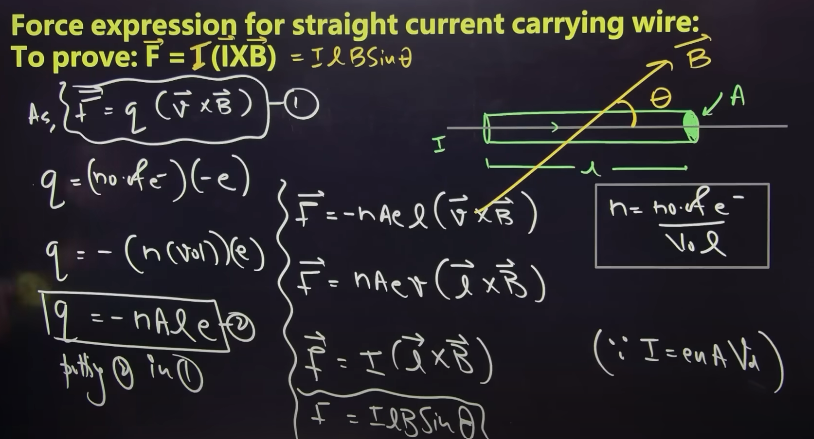 Force expression for straight current carrying wire:
To prove: F⃗ = I(l⃗XB⃗) = I l B Sin θ
As, F⃗ = q (v⃗ × B⃗) — ①
q = (no. of e⁻) (-e)
q = - (n (vol)) (e)
q = - n A l e — ②
② in ①
F⃗ = - n A e l (v⃗ × B⃗)
F⃗ = n A e v (l⃗ × B⃗)
F⃗ = I (l⃗ × B⃗)
F = I l B Sin θ
B⃗
θ
A
I
l
n = no. of e⁻ / Vol
(∵ I = e n A Vd)